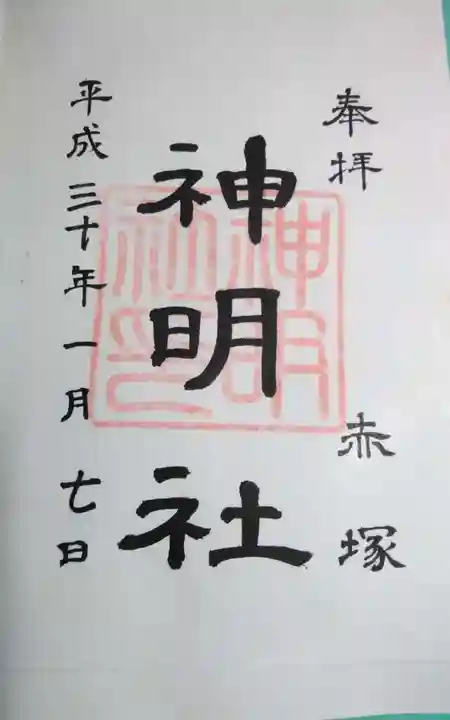 奉拝
赤塚
神明社
神明社印
平成三十年一月七日